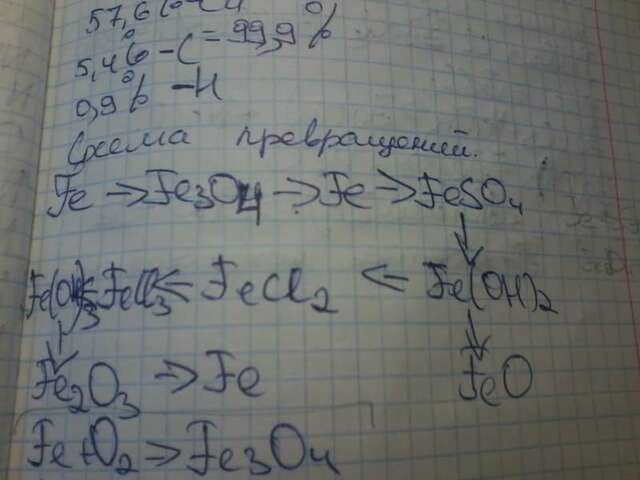 5,4% - C = 99,9%
0,9% - H
Схема превращений.
Fe → Fe3O4 → Fe → FeSO4
↓
Fe(OH)3 ← FeCl3 ← FeCl2 ← Fe(OH)2
↓ ↓
Fe2O3 → Fe FeO
Fe + O2 → Fe3O4